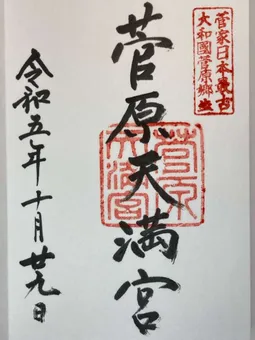 菅家日本最古
大和國菅原郷坐
菅原天満宮
菅原
天満宮
令和五年十月廿九日